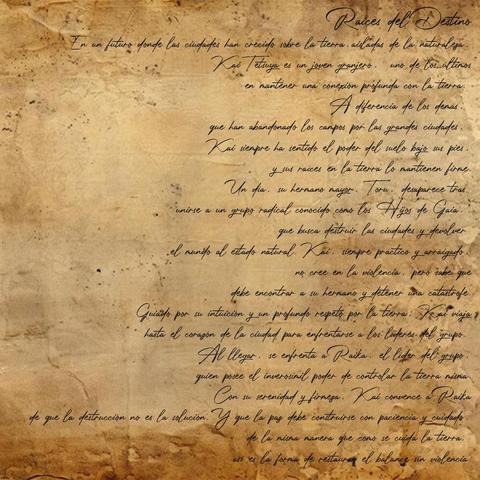 Raíces del Destino
En un futuro donde las ciudades han crecido sobre la tierra, aisladas de la naturaleza,
Kai Tetsuya es un joven granjero, uno de los últimos
en mantener una conexión profunda con la tierra.
A diferencia de los demás,
que han abandonado los campos por las grandes ciudades,
Kai siempre ha sentido el poder del suelo bajo sus pies,
y sus raíces en la tierra lo mantienen firme.
Un día, su hermano mayor, Toru, desaparece tras
unirse a un grupo radical conocido como los Hijos de Gaia,
que busca destruir las ciudades y devolver
el mundo al estado natural. Kai, siempre práctico y arraigado,
no cree en la violencia, pero sabe que
debe encontrar a su hermano y detener una catástrofe.
Guiado por su intuición y un profundo respeto por la tierra, Kai viaja
hasta el corazón de la ciudad para enfrentarse a los líderes del grupo.
Al llegar, se enfrenta a Raika, el líder del grupo,
quien posee el inverosímil poder de controlar la tierra misma.
Con su serenidad y firmeza, Kai convence a Raika
de que la destrucción no es la solución. Y que la paz debe construirse con paciencia y cuidado,
de la misma manera que como se cuida la tierra,
así es la forma de restaurar el balance sin violencia.